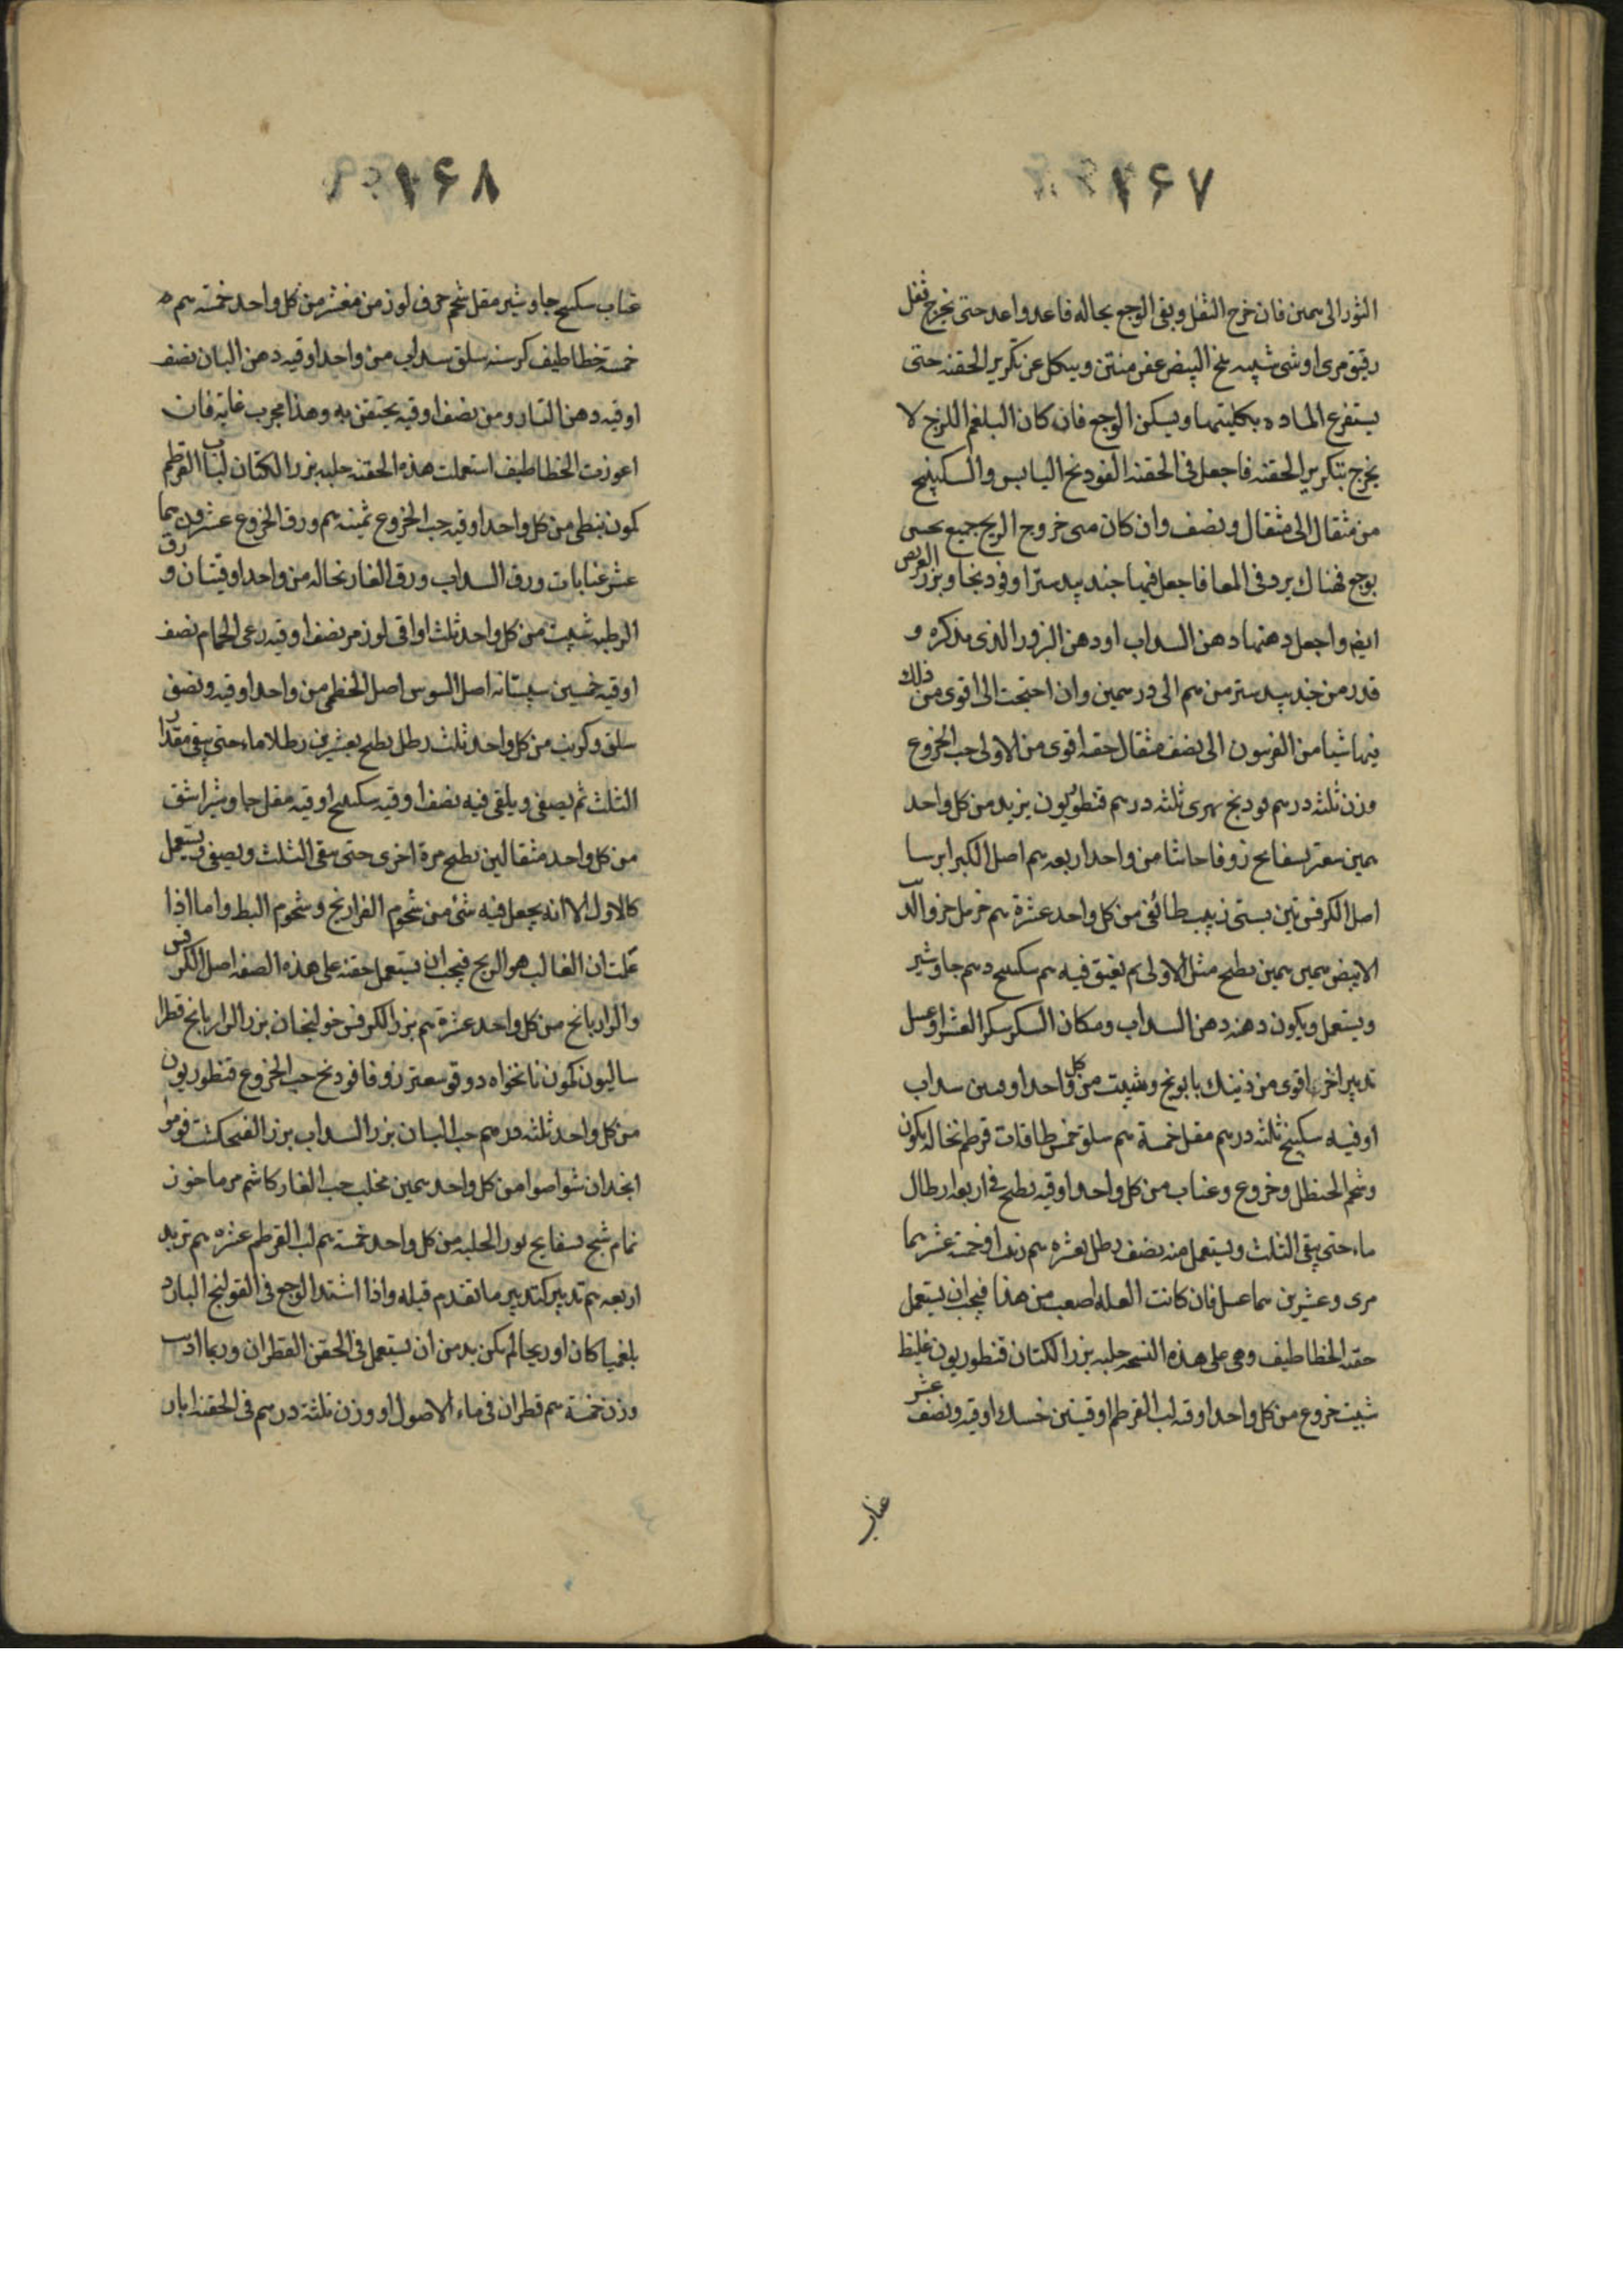 ۲۶۷
الثور الى سمين فان خرج الثفل وبقى الوجع بحاله فاعد واعد حتى يخرج ثفل
رقيق مرى او شى شبيه بمخ البيض عفن منتن وينكل عن تكرير الحقنه حتى
يستفرغ الماده بكليتها ويسكن الوجع فان كان البلغم اللزج لا
يخرج بتكرير الحقنه فاجعل فى الحقنه الفودنج اليابس والسكبينج
من مثقال الى مثقال ونصف وان كان متى خروج الريح جميع يحس
بوجع فهناك برد فى المعا فاجعل فيها جندبيدستر او فودنجا وبزر العريض
ايضم واجعل دهنها دهن السداب او دهن البزور الذى نذكره و
قدر من جندبيدستر من سم الى درسمين وان احتجت الى اقوى من ذلك
فيها شيا من الفربيون الى نصف مثقال حقنه اقوى من الاولى حب الخروع
وزن ثلثه درسم فودنج نهرى ثلثه درسم قنطوريون يزيد من كل واحد
سمين سعتر بسفايج زوفا حاشا من واحد اربعه سم اصل الكبر ايرسا
اصل الكرفس تين بستى زبيب طائفى من كل واحد عشرة سم خرمل خرو الديك
الابيض سمين سمين يطبخ مثل الاولى ثم يفيق فيه سم سكبينج دسم جاوشير
ويستعمل ويكون دهنه دهن السداب ومكان السكر سكر العشر او عسل
تدبير اخر اقوى من ذينك بابونج وشبت من كل واحد اوقيتين سداب
اوقيه سكبينج ثلثه درسم مقل خمسة سم سلق خمس طاقات قرطم نخاله كمون
وشحم الحنظل وخروع وعناب من كل واحد اوقيه يطبخ فى اربعه ارطال
ماء حتى يبقى الثلث ويستعمل منه نصف رطل بعشره سم زنبق او خمسة عشر سما
مرى وعشرين سما عسل فان كانت العله اصعب من هذا فيجب ان يستعمل
حقنه الخطاطيف وهى على هذه النسخه حلبه بزر الكتان قنطوريون غليظ
شبت خروع من كل واحد اوقه لب القرطم اوقيتين خسك اوقيه ونصف عشر
عناب
۲۶۸
عناب سكبينج جاوشير مقل شحم حرف لوز من مقشر من كل واحد خمسه سم ه
خمسة خطاطيف كرسنه سلق سداب من واحد اوقيه دهن البان نصف
اوقيه دهن النار ومن نصف اوقيه يحتقن به وهذا مجرب غايه فان
اعوزت الخطاطيف استعملت هذه الحقنه حلبه بزر الكتان لباب القرطم
كمون نبطى من كل واحد اوقيه حب الخروع ثمينه سم ورق الخروع عشرون سما
عشر عنابات ورق السداب ورق الغار نخاله من واحد اوقيتان ورق
الرطبه شبت من كل واحد ثلث اواقى لوز مر نصف اوقيه رعى الحمام نصف
اوقيه خمسين سپستانه اصل السوس اصل الخطمى من واحد اوقيه ونصف
سلق وكرنب من كل واحد ثلث رطل يطبخ بعشرين رطلا ماء حتى يبقى مقدار
الثلث ثم يصفى ويلقى فيه نصف اوقيه سكبينج اوقيه مقل جاوشير اشق
من كل واحد مثقالين يطبخ مرة اخرى حتى يبقى الثلث ويصفى ويستعمل
كالاول الا انه يجعل فيه شئ من شحوم الفراريج وشحوم البط واما اذا
علمت ان الغالب هو الريح فيجب ان يستعمل حقنه على هذه الصفه اصل الكرفس
والرازيانج من كل واحد عشرة سم بزر الكرفس خولنجان بزر الرازيانج قطرا
ساليون كمون نانخواه دوقو سعتر زوفا فودنج حب الخروع قنطوريون
من كل واحد ثلثه درسم حب البان بزر السداب بزر الفنجكشت فومو
انجدان شواصوا من كل واحد سمين محلب حب الغار كاشم مرماخوز
نمام شيح بسفايج بور الحلبه من كل واحد خمسة سم لب القرطم عشره سم تربد
اربعه سم تدبير كتدبير ما تقدم قبله واذا اشتد الوجع فى القولنج البارد
بلغميا كان او ريحا لم يكن بد من ان يستعمل فى الحقن القطران وربما اديب
وزن خمسة سم قطران فى ماء الاصول او وزن ثلثه درسم فى الحقنه اباد